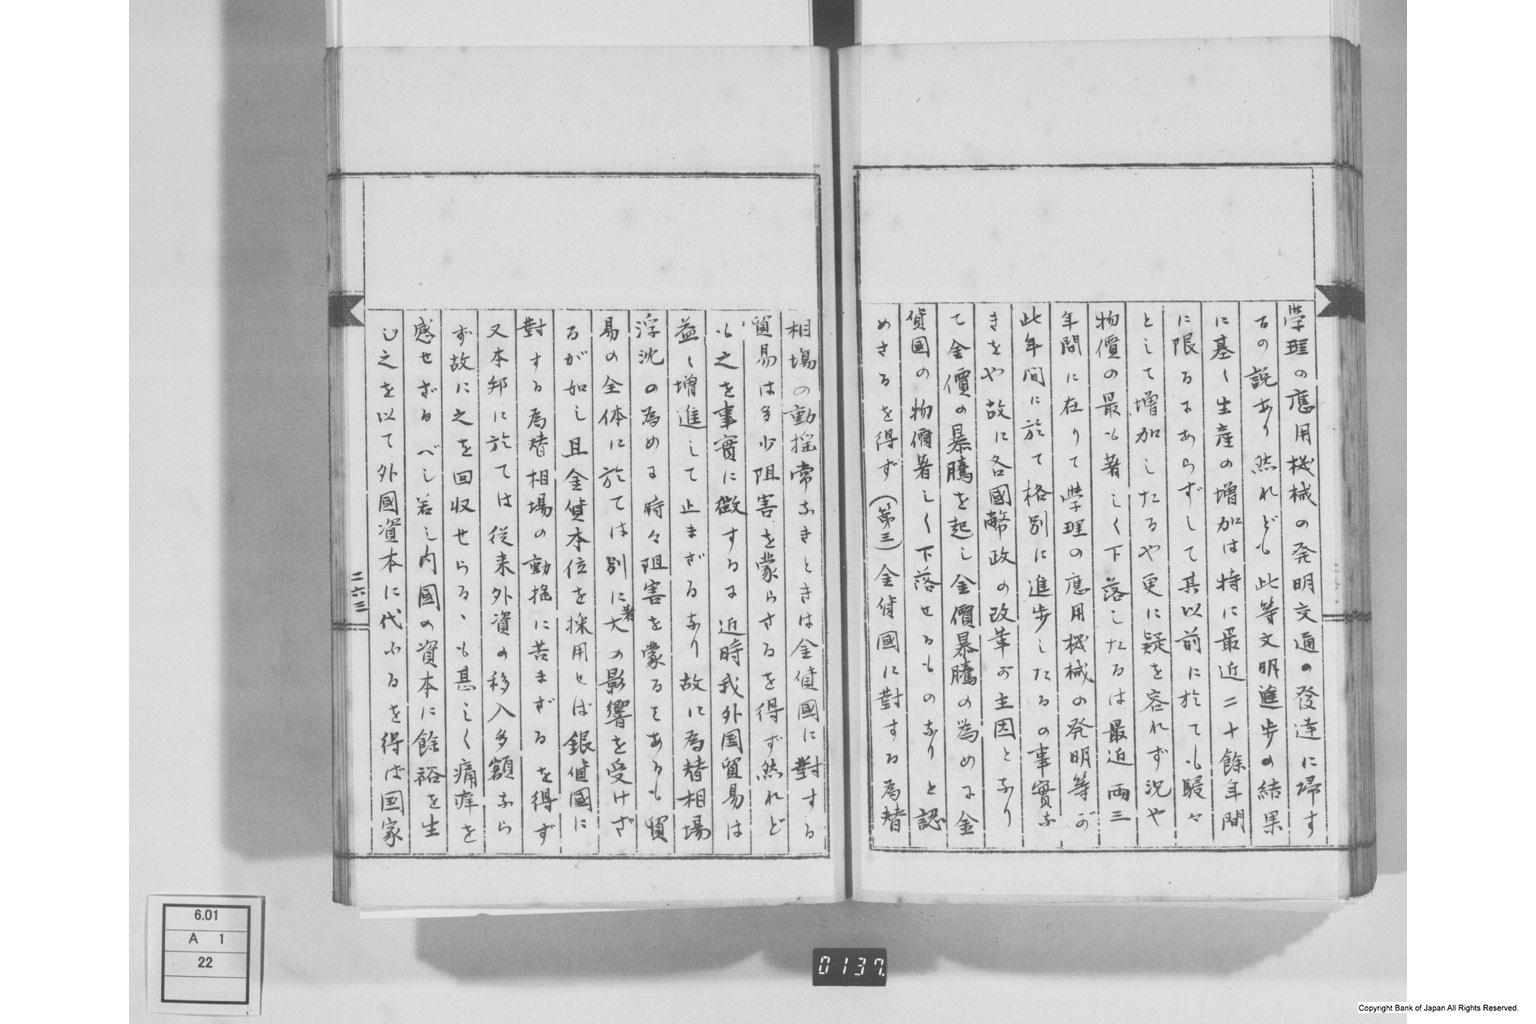 學理の應用機械の発明交通の發達に帰す
るの説あり然れども此等文明進歩の結果
に基く生産の增加は特に最近二十餘年間
に限るにあらずして其以前に於ても駸々
として増加したるや更に疑を容れず況や
物價の最も著しく下落したるは最近両三
年間に在りて學理の應用機械の発明等が
此年間に於て格別に進歩したるの事實な
きをや故に各國幣政の改革が主因となり
て金價の暴騰を起し金價暴騰の為めに金
貨国の物價著しく下落せるものなりと認
めざるを得ず(第三)金貨國に對する為替
相塲の動揺常なきときは金貨國に對する
貿易は多少阻害を蒙らざるを得ず然れど
も之を事實に徴するに近時我外国貿易は
益々増進して止まざるなり故に為替相場
浮沈の為めに時々阻害を蒙るとあるも貿
易の全体に於ては別に著大の影響を受けざ
るが如し且金貨本位を採用せば銀貨國に
對する為替相場の動揺に苦まざるを得ず
又本邦に於ては従来外資の移入多額なら
ず故に之を回収せらるゝも甚しく痛痒を
感せざるべし若し内國の資本に餘裕を生
じ之を以て外國資本に代ふるを得ば国家
二六三
6.01
A 1
22
0137.
Copyright Bank of Japan All Rights Reserved.